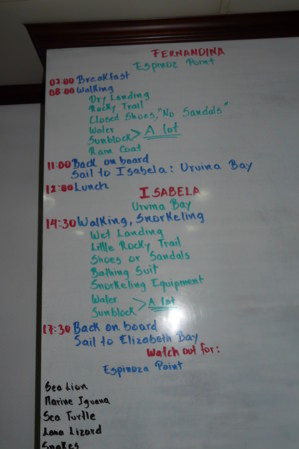 FERNANDINA
Espinoz Point
07:00 Breakfast
08:00 Walking
Dry Landing
Rocky Trail
Closed Shoes, "No Sandals"
Water
Sunblock > A lot
Rain Coat
11:00 Back on board
Sail to Isabela: Urvina Bay
12:00 Lunch
ISABELA
Urvina Bay
14:30 Walking, Snorkeling
Wet Landing
Little Rocky Trail
Shoes or Sandals
Bathing Suit
Snorkeling Equipment
Water
Sunblock > A lot
17:30 Back on board
Sail to Elizabeth Bay
Watch out for:
Espinoza Point
Sea Lion
Marine Iguana
Sea Turtle
Lava Lizard
Snakes